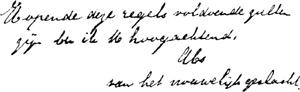 Hopende deze regels voldoende zullen
zijn ben ik Uw hoogachtend,
Abs
van het vrouwelijk geslacht.